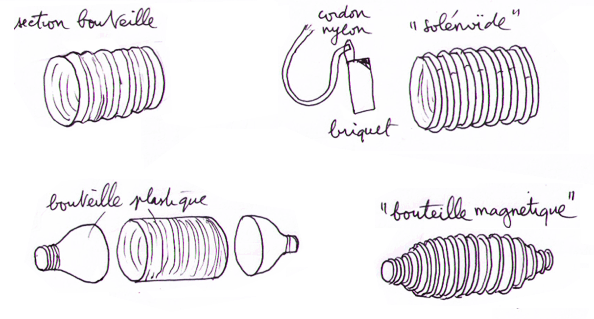 section bouteille
cordon
nylon
"solénoïde"
briquet
bouteille plastique
"bouteille magnétique"